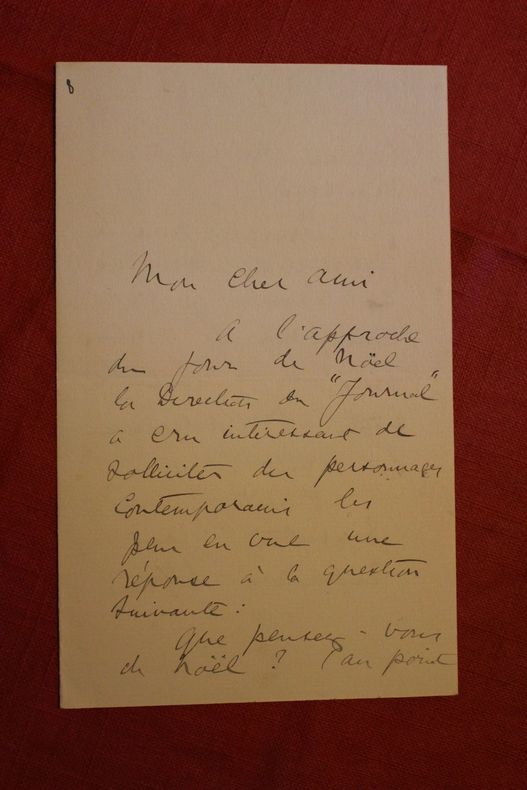 8
Mon cher ami
A l'approche
du jour de Noël
la Direction du "Journal"
a cru intéressant de
solliciter des personnages
contemporains les
plus en vue une
réponse à la question
suivante :
Que pensez-vous
de Noël ? (au point